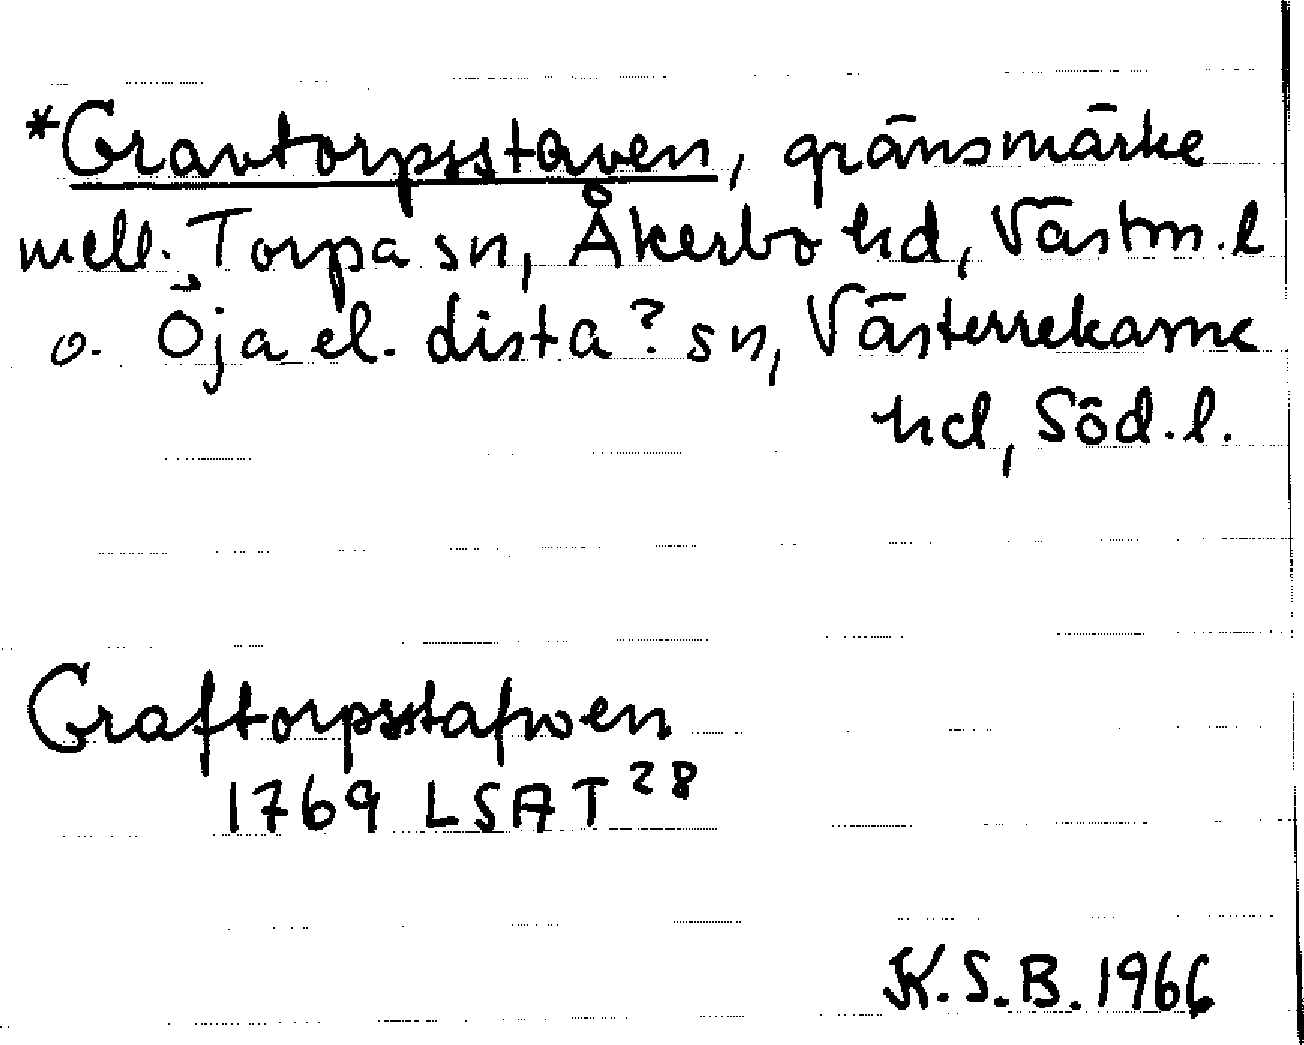 *Gravtorpsstaven, gränsmärke
mell. Torpa sn, Åkerbo hd, Västm. l
o. Öja el. dista? sn, Västerrekarne
hd, Söd. l.
Graftorpsstafwen
1769 LSA T 28
K.S.B. 1966